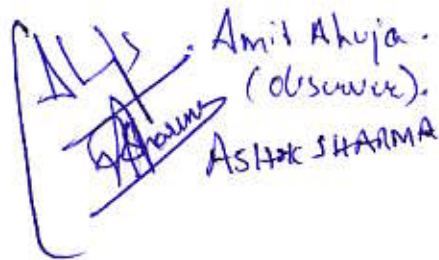 Amit Ahuja.
(observer).
Sharma
ASHOK SHARMA